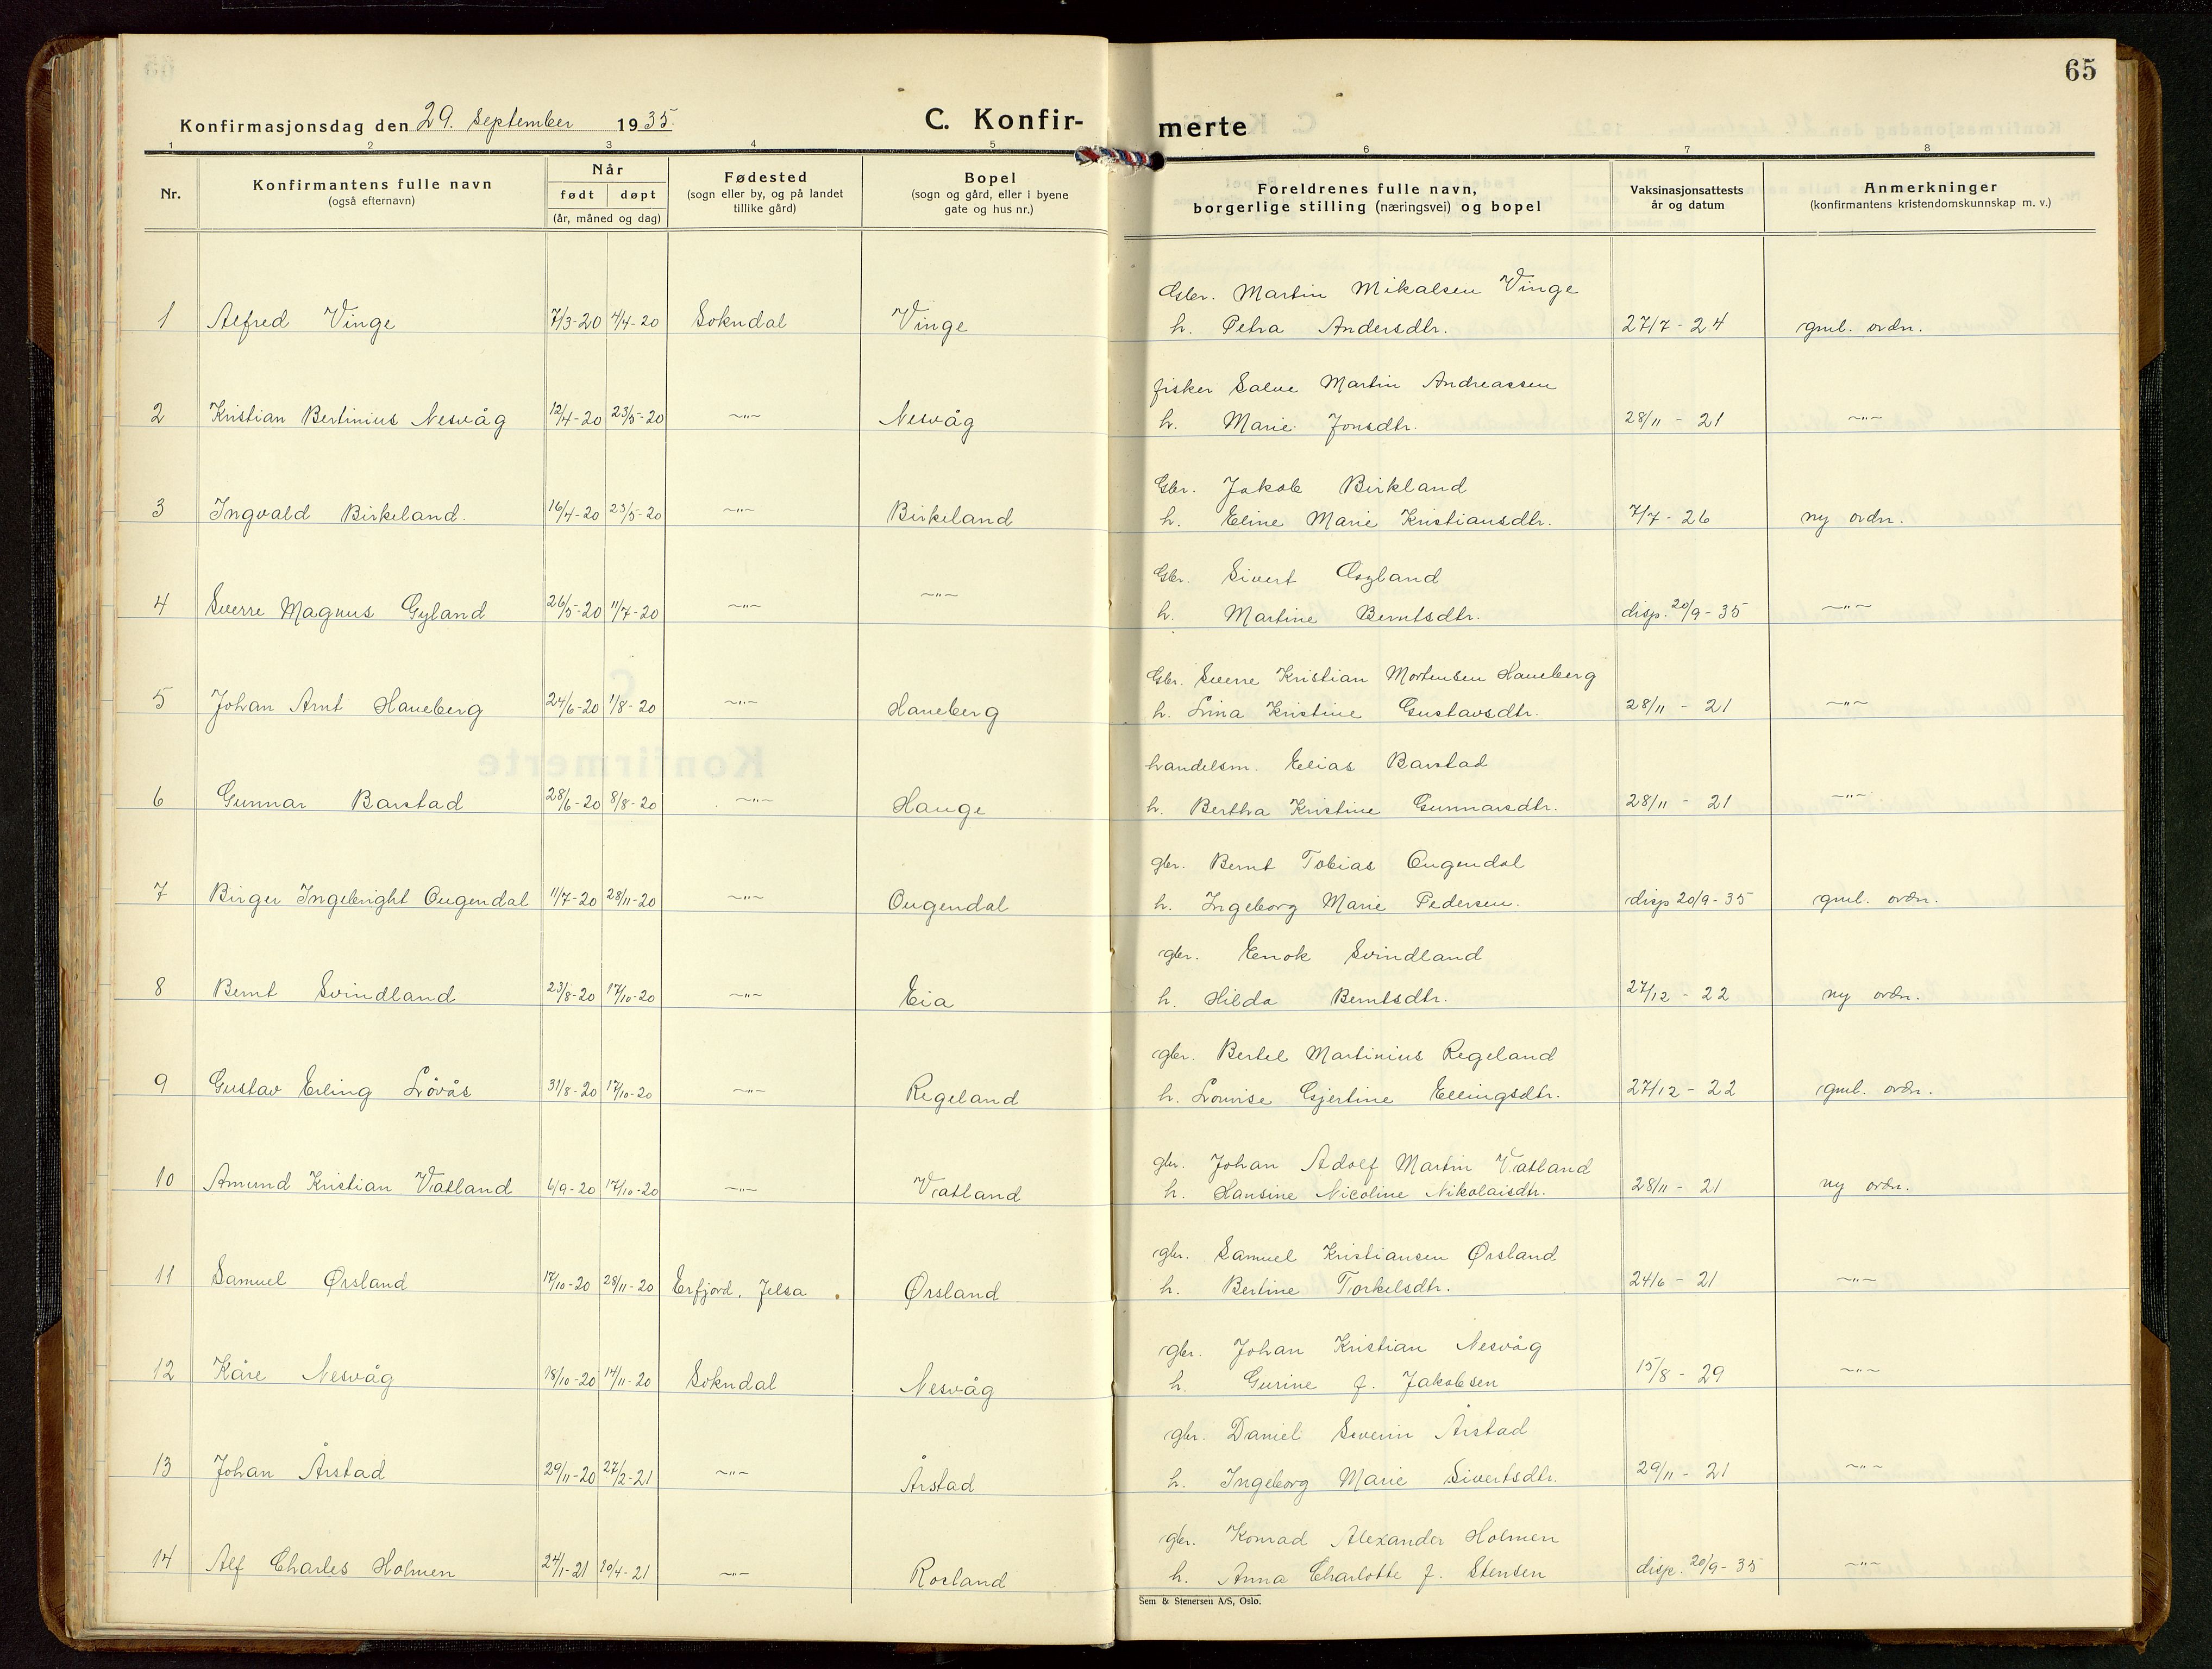 65
Konfirmasjonsdag den 29. september 1935.
C. Konfir-
merte
1 2 3 4 5 6 7 8
Nr.
Konfirmantens fulle navn
(også efternavn)
Når
født døpt
(år, måned og dag)
Fødested
(sogn eller by, og på landet
tillike gård)
Bopel
(sogn og gård, eller i byene
gate og hus nr.)
Foreldrenes fulle navn,
borgerlige stilling (næringsvei) og bopel
Vaksinasjonsattests
år og datum
Anmerkninger
(konfirmantens kristendomskunnskap m. v.)
Gbr. Martin Mikalsen Vinge
1 Alfred Vinge 7/3-20 4/4-20 Sokndal Vinge h. Petra Andersdtr. 27/7-24 gml. ordn.
fisker Salve Martin Andreassen
2 Kristian Bertinius Nesvåg 12/4-20 23/5-20 -"- Nesvåg h. Marie Jonsdtr. 28/11-21 -"-
Gbr. Jakob Birkland
3 Ingvald Birkeland. 16/4-20 23/5-20 -"- Birkeland h. Eline Marie Kristiansdtr. 7/7-26 ny ordn.
Gbr. Sivert
4 Sverre Magnus Gyland 26/5-20 11/7-20 -"- -"- h. Martine Berntsdtr. disp. 20/9-35 -"-
Gbr. Sverre Kristian Mortensen Haneberg
5 Johan Arnt Haneberg 24/6-20 1/8-20 -"- Haneberg h. Lina Kristine Gustavsdtr. 28/11-21 -"-
handelsm. Elias Barstad
6 Gunnar Barstad 28/6-20 8/8-20 -"- Hauge h. Bertha Kristine Gunnarsdtr. 28/11-21 -"-
gbr. Bernt Tobias Ougendal
7 Birger Ingebright Ougendal 11/7-20 28/11-20 -"- Ougendal h. Ingeborg Marie Pedersen. disp 20/9-35 gml. ordn.
gbr. Enok Svindland
8 Bernt Svindland 23/8-20 17/10-20 -"- Eia h. Hilda Berntsdtr. 27/12-22 ny ordn.
gbr. Bertel Martinius Regeland
9 Gustav Erling Lövås 31/8-20 17/10-20 -"- Regeland h. Lovise Gjertine Ellingsdtr. 27/12-22 gml. ordn.
gbr. Johan Adolf Martin Vatland
10 Amund Kristian Vatland 6/9-20 17/10-20 -"- Vatland h. Hansine Nicoline Nikolaisdtr. 28/11-21 ny ordn.
gbr. Samuel Kristiansen Ørsland
11 Samuel Ørsland 17/10-20 28/11-20 Erfjord, Jelsa Ørsland h. Bertine Torkelsdtr. 24/6-21 -"-
gbr. Johan Kristian Nesvåg
12 Kåre Nesvåg 18/10-20 14/11-20 Sokndal Nesvåg h. Gurine f. Jakobsen 15/8-29 -"-
gbr. Daniel Severin Årstad
13 Johan Årstad 29/11-20 27/2-21 -"- Årstad h. Ingeborg Marie Sivertsdtr. 29/11-21 -"-
gbr. Konrad Alexander Holmen
14 Alf Charles Holmen 24/1-21 10/4-21 -"- Rosland h. Anna Charlotte f. Stensen disp. 20/9-35 -"-
Sem & Stenersen A/S, Oslo.